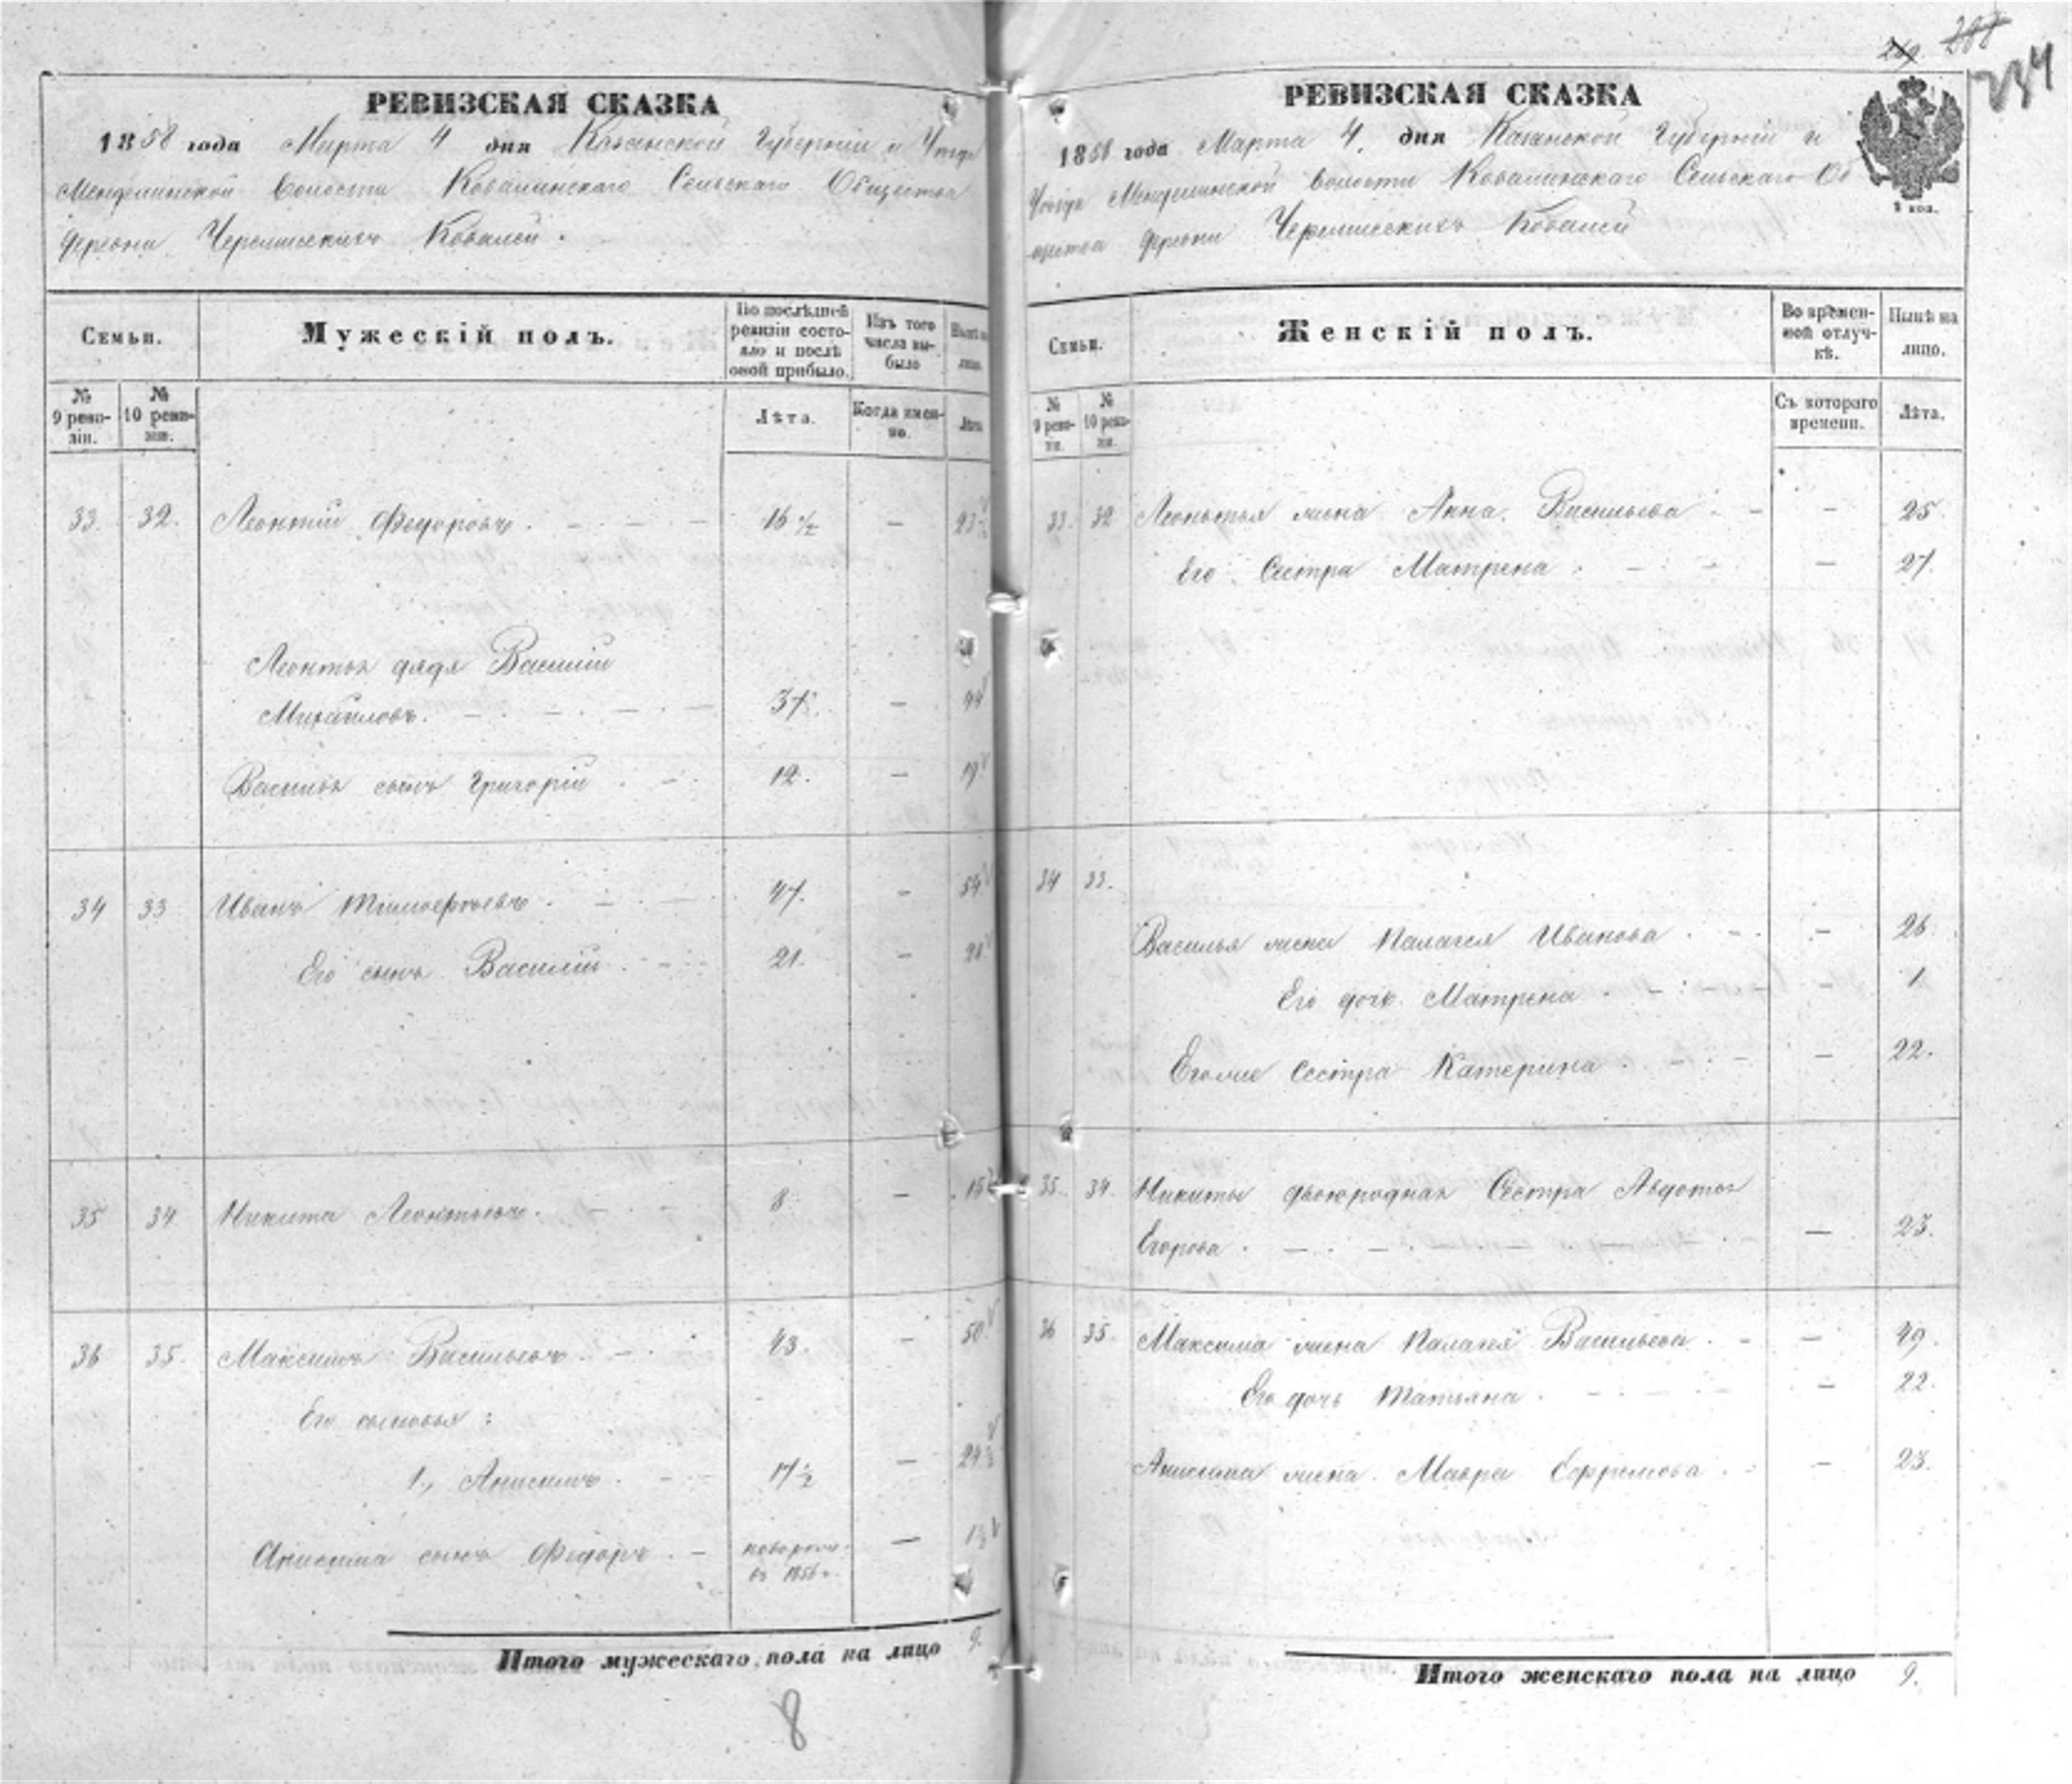 РЕВИЗСКАЯ СКАЗКА
1858 года Марта 4 дня Казанской Губерніи и Уезда
Менделинской волости Ковалинскаго Сельскаго Общества
деревни Черемисскихъ Ковалей.
Семьи.
Мужескій полъ.
По послѣдней ревизіи состояло и послѣ оной прибыло.
Изъ того числа выбыло
Нынѣ на лицо.
№ 9 ревизіи.
№ 10 ревизіи.
Лѣта.
Когда именно.
Лѣта
33. 32. Леонтій Федоровъ. 16 1/2 — 23 1/2
Леонтья дядя Василій
Михайловъ. 37. — 44
Василья сынъ Григорій 12. — 19
34 33 Иванъ Тимофѣевъ. 47. — 54
Его сынъ Василій 21. — 28
35 34 Никита Леонтьевъ. 8 — 15
36 35. Максимъ Васильевъ 43. — 50
Его сыновья:
1., Анисимъ. 17 1/2 — 24 1/2
Анисима сынъ Федоръ. — новорож. — 1 1/2
въ 1856 г.
Итого мужескаго пола на лицо 9.
8
269. 288
234
РЕВИЗСКАЯ СКАЗКА
1858 года Марта 4. дня Казанской Губерніи и
Уезда Менделинской волости Ковалинскаго Сельскаго Об
щества деревни Черемисскихъ Ковалей
Семьи.
Женскій полъ.
Во временной отлучкѣ.
Нынѣ на лицо.
№ 9 ревизіи.
№ 10 ревизіи.
Съ котораго времени.
Лѣта.
33. 32 Леонтья жена Анна Васильева — 25
Его Сестра Матрена — 27.
34 33.
Василья жена Палагея Иванова — 26
Его дочь Матрена — 1
Его же сестра Катерина — 22.
35. 34. Никиты двоюродная Сестра Авдотья
Егорова. — 23.
36 35. Максима жена Палагея Васильева — 49.
Его дочь Татьяна — 22.
Анисима жена Мавра Ефремова — 23.
Итого женскаго пола на лицо 9.